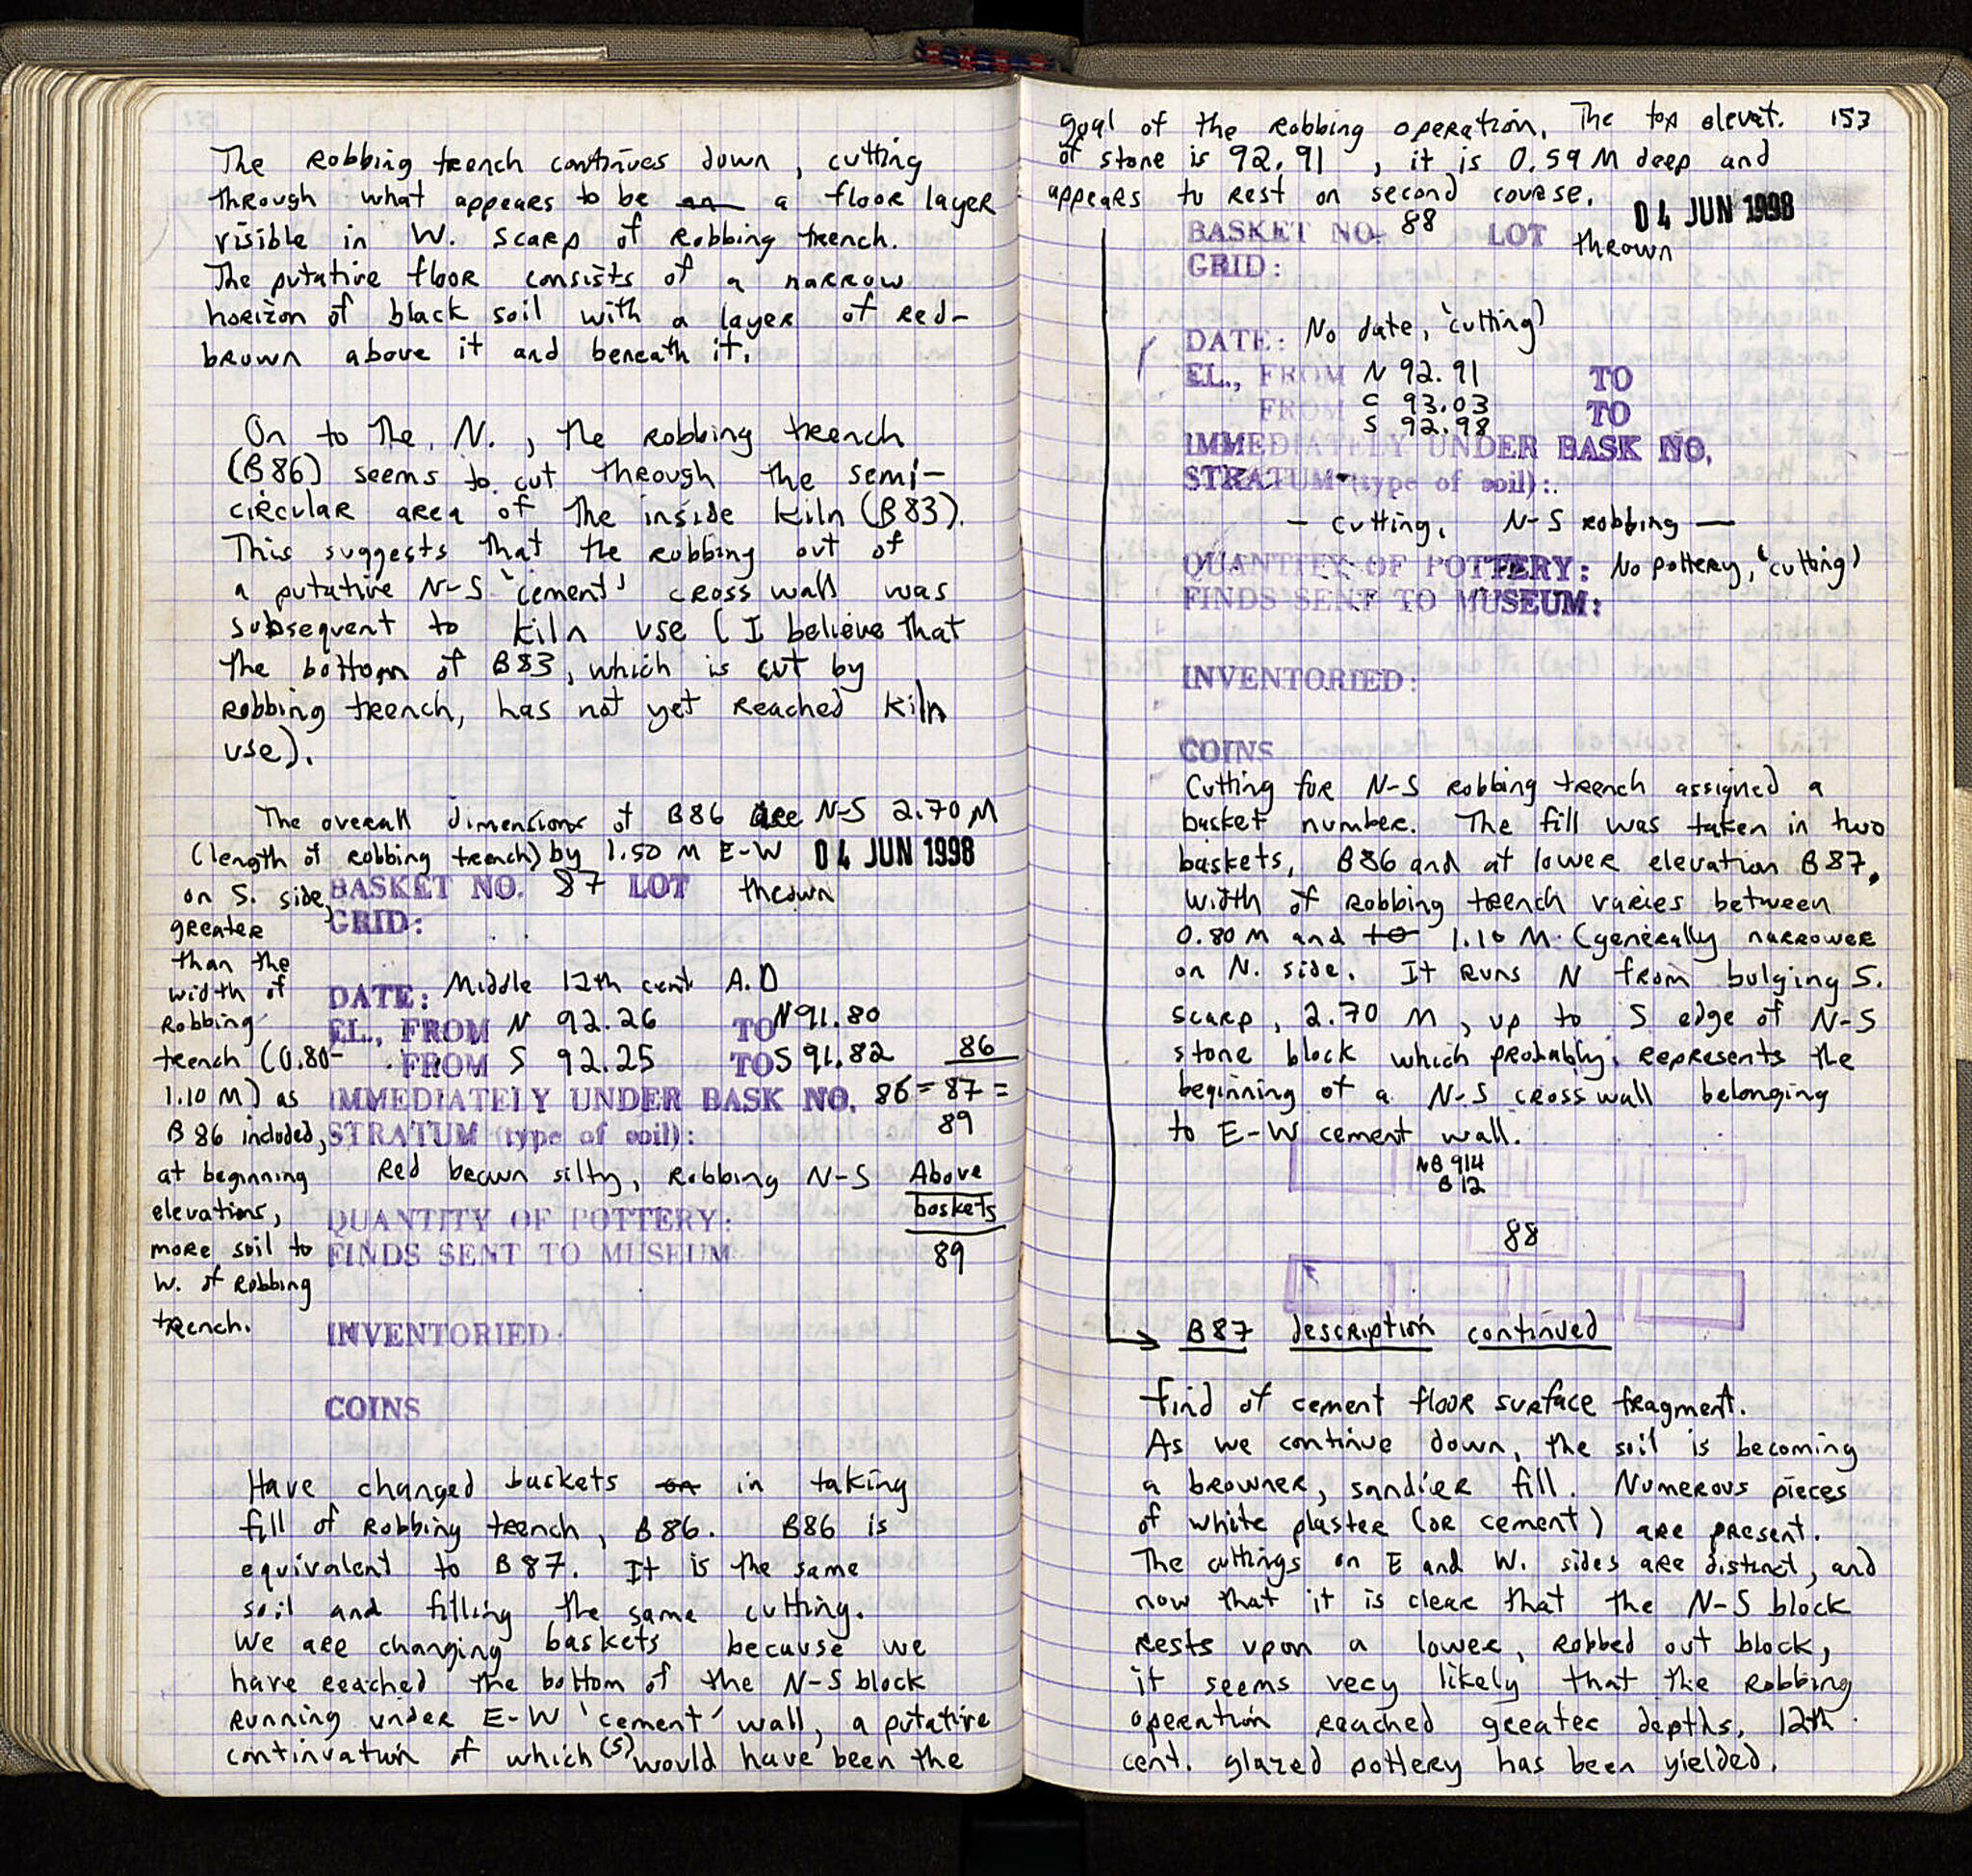 The Robbing trench continues down, cutting
through what appears to be an a floor layer
visible in W. scarp of Robbing trench.
The putative floor consists of a narrow
horizon of black soil with a layer of red-
brown above it and beneath it.
On to the N., the robbing trench
(B86) seems to cut through the semi-
circular area of the inside kiln (B83).
This suggests that the robbing out of
a putative N-S 'cement' cross wall was
subsequent to kiln use (I believe that
the bottom of B83, which is cut by
robbing trench, has not yet reached kiln
use).
The overall dimensions of B86 are N-S 2.70 M
(length of robbing trench) by 1.50 M E-W
on S. side,
greater
than the
width of
Robbing
trench (0.80-
1.10 M) as
B86 included,
at beginning
elevations,
more soil to
W. of Robbing
trench.
04 JUN 1998
BASKET NO. 87 LOT thrown
GRID:
DATE: Middle 12th cent A.D
EL., FROM N 92.26 TO N 91.80
FROM S 92.25 TO S 91.82
86
IMMEDIATELY UNDER BASK NO. 86 = 87 =
89
STRATUM (type of soil):
Red brown silty, Robbing N-S
Above
baskets
89
QUANTITY OF POTTERY:
FINDS SENT TO MUSEUM:
INVENTORIED:
COINS
Have changed baskets on in taking
fill of robbing trench, B86. B86 is
equivalent to B87. It is the same
soil and filling the same cutting.
We are changing baskets because we
have reached the bottom of the N-S block
running under E-W 'cement' wall, a putative
continuation of which (S) would have been the
153
goal of the robbing operation. The top elevat.
of stone is 92.91 , it is 0.59 M deep and
appears to rest on second course.
04 JUN 1998
BASKET NO. 88 LOT thrown
GRID:
DATE: No date, 'cutting'
EL., FROM N 92.91 TO
FROM C 93.03 TO
S 92.98
IMMEDIATELY UNDER BASK NO.
STRATUM (type of soil):
- cutting, N-S robbing -
QUANTITY OF POTTERY: No pottery, 'cutting'
FINDS SENT TO MUSEUM:
INVENTORIED:
COINS
Cutting for N-S robbing trench assigned a
basket number. The fill was taken in two
baskets, B86 and at lower elevation B87.
Width of robbing trench varies between
0.80 M and to 1.10 M (generally narrower
on N. side. It runs N from bulging S.
scarp, 2.70 M, up to S edge of N-S
stone block which probably represents the
beginning of a N-S cross wall belonging
to E-W cement wall.
NB 914
B 12
88
B87 description continued
find of cement floor surface fragment.
As we continue down, the soil is becoming
a browner, sandier fill. Numerous pieces
of white plaster (or cement) are present.
The cuttings on E and W. sides are distinct, and
now that it is clear that the N-S block
rests upon a lower, robbed out block,
it seems very likely that the robbing
operation reached greater depths. 12th
cent. glazed pottery has been yielded.